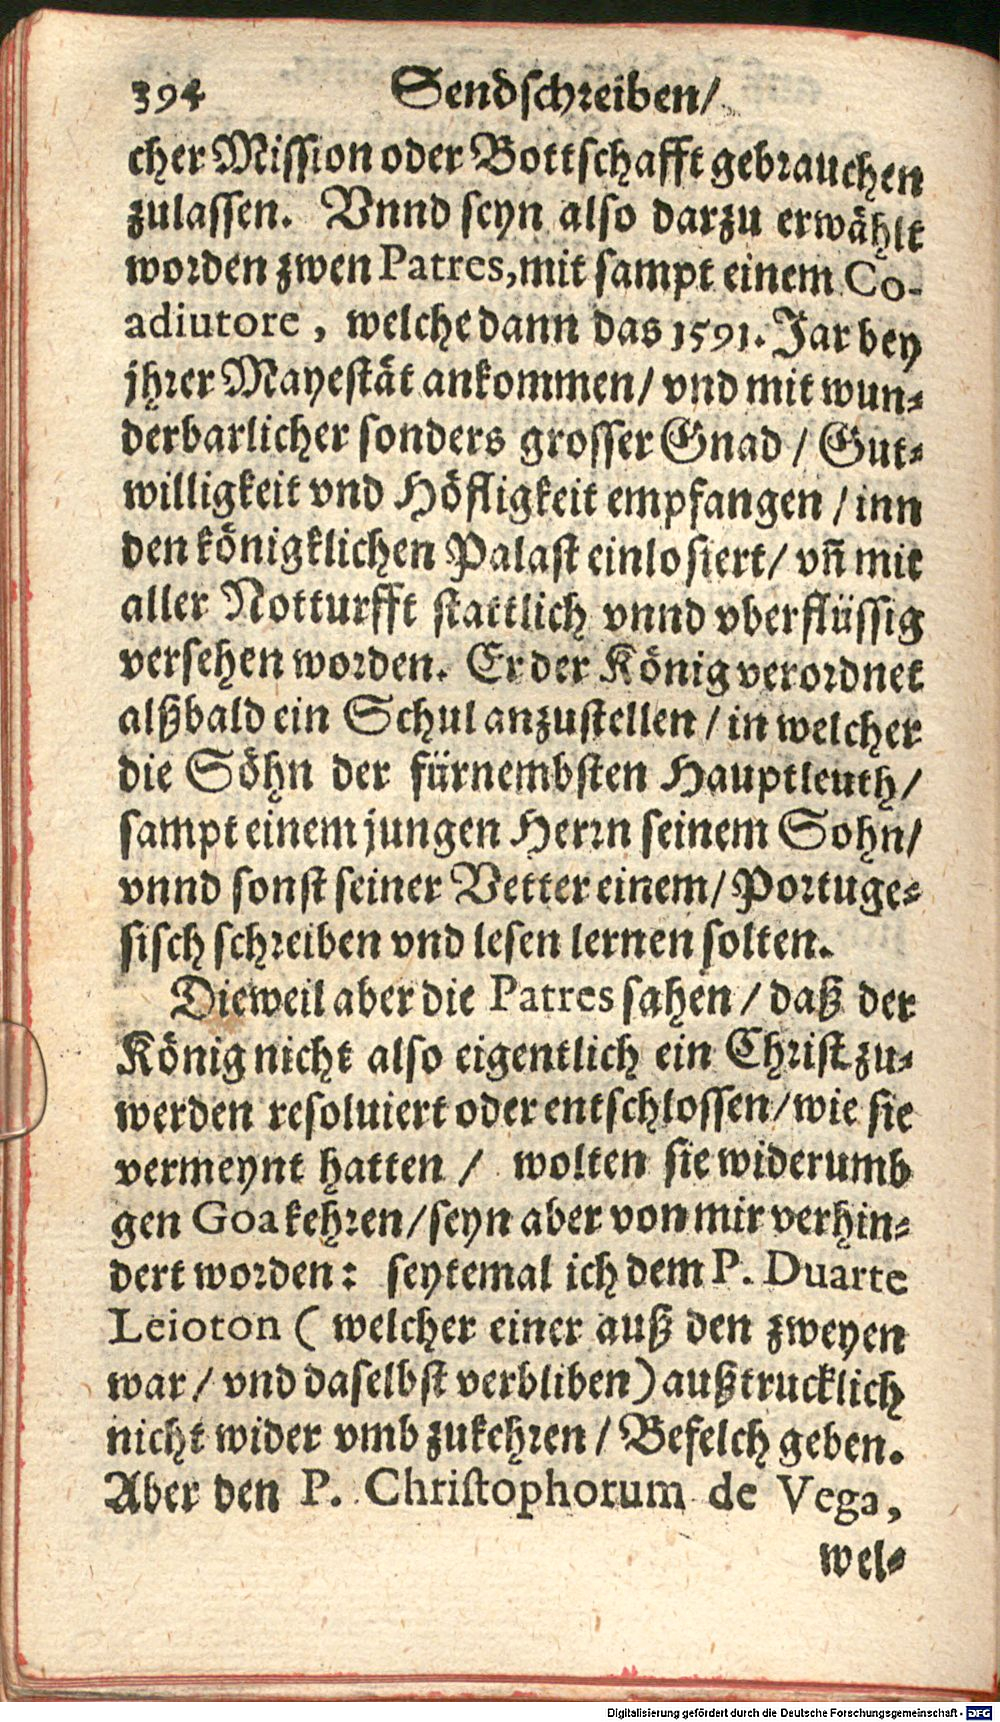 394 Sendschreiben/
cher Mission oder Bottschafft gebrauchen
zulassen. Vnnd seyn also darzu erwählt
worden zwen Patres, mit sampt einem Co-
adiutore, welche dann das 1591. Jar bey
jhrer Mayestät ankommen/ vnd mit wun-
derbarlicher sonders grosser Gnad/ Gut-
willigkeit vnd Höfligkeit empfangen/ inn
den königklichen Palast einlosiert/ vñ mit
aller Notturfft stattlich vnnd vberflüssig
versehen worden. Er der König verordnet
alßbald ein Schul anzustellen/ in welcher
die Söhn der fürnembsten Hauptleuth/
sampt einem jungen Herrn seinem Sohn/
vnnd sonst seiner Vetter einem/ Portuge-
sisch schreiben vnd lesen lernen solten.
Dieweil aber die Patres sahen/ daß der
König nicht also eigentlich ein Christ zu-
werden resoluiert oder entschlossen/ wie sie
vermeynt hatten/ wolten sie widerumb
gen Goa kehren/ seyn aber von mir verhin-
dert worden: seytemal ich dem P. Duarte
Leioton (welcher einer auß den zweyen
war/ vnd daselbst verbliben) außtrucklich
nicht wider vmb zukehren/ Befelch geben.
Aber den P. Christophorum de Vega,
wel-
Digitalisierung gefördert durch die Deutsche Forschungsgemeinschaft - DFG